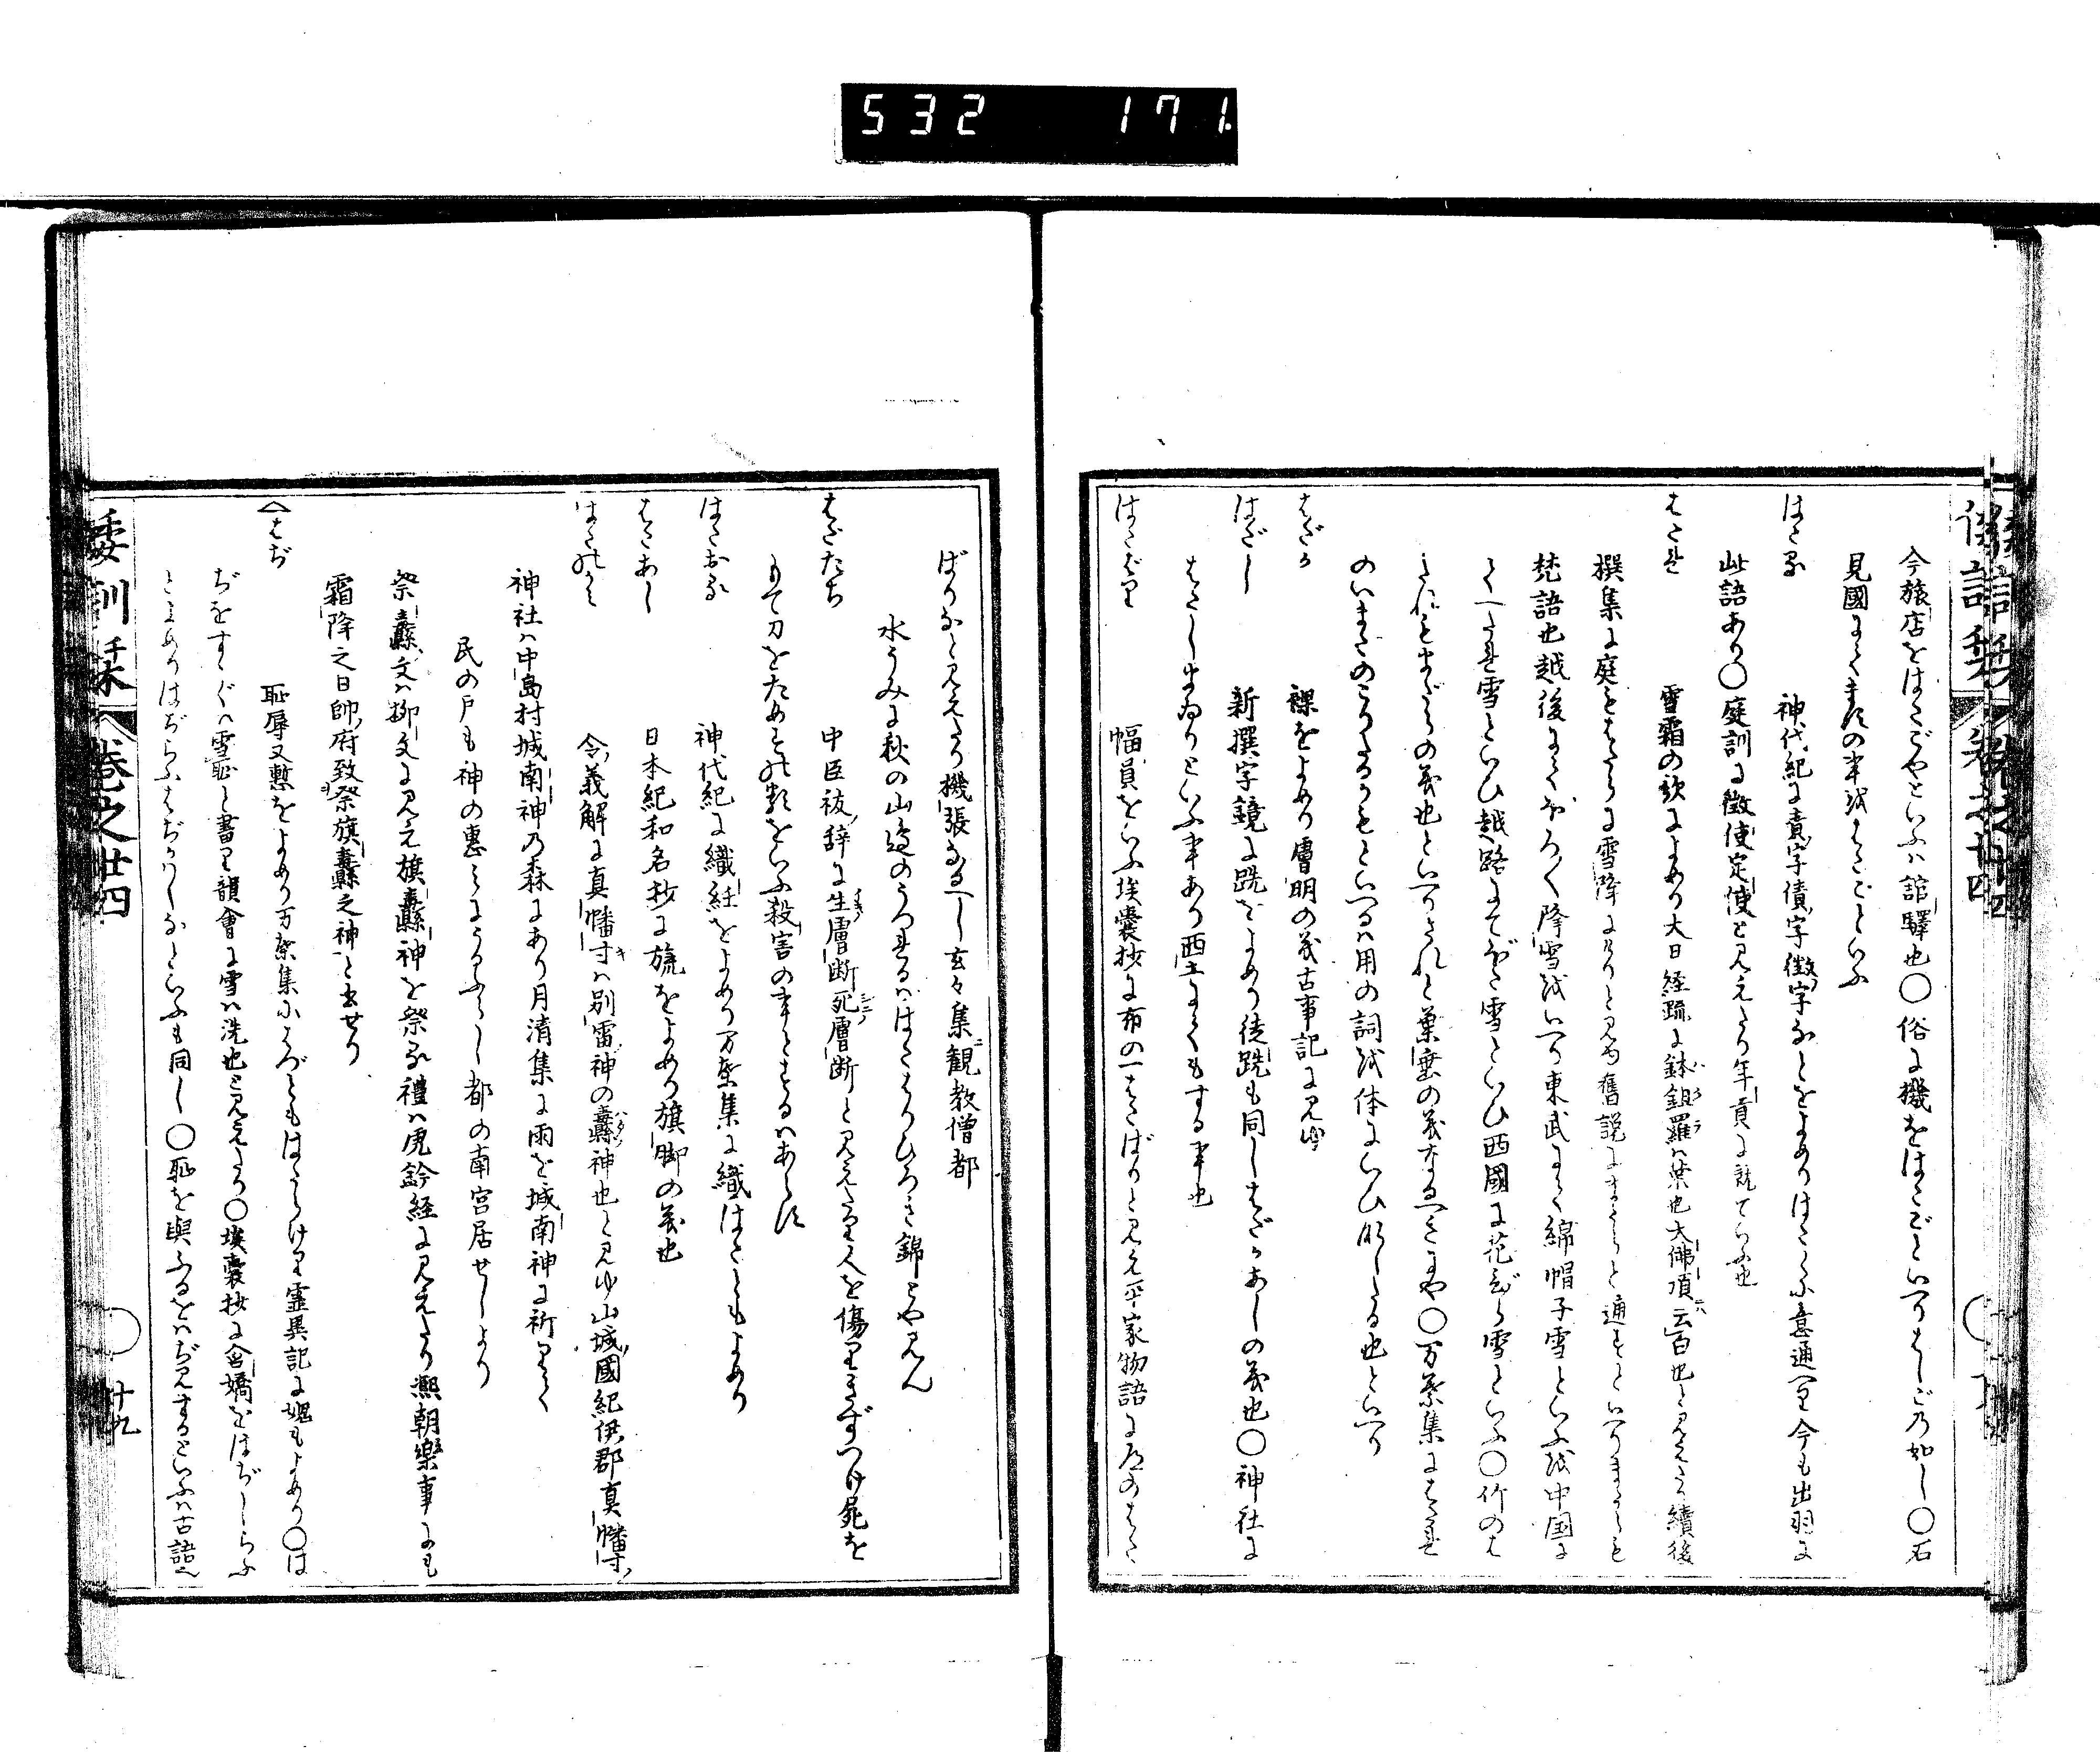 532 171
今旅店をはたごやといふハ館驛也〇俗に機をはたごといへりはしごの如し〇石
見國にてますの事をはたごといふ
はたる 神代紀に責字債字徴字などをよめりはたらふ意通へり今も出羽に
此語あり〇庭訓に徴使定使と見えたり年貢に就ていふ也
はだれ 雪霜の歌によめり大日経疏に鉢怛羅ハ葉也大佛頂云百也と見えたり續後
撰集に庭もはたらに雪降にけりと見ゆ舊説にまだらと通ずといへりまだらも
梵語也越後にてほろ〱降雪をいへり東武にて綿帽子雪といふを中国に
てハだれ雪といひ越路にてぼた雪といひ西國に花びら雪といふ〇竹のは
だれもまだらの義也といへりされと葉垂の義なるべきにや〇万葉集にはだれ
のいまだのこりたるかもといへるハ用の詞を体にいひなしたる也といへり
はだか 裸をよめり膚明の義古事記に見ゆ
はだし 新撰字鏡に跣をよめり徒跣も同しはだかあしの義也〇神社に
はだしまゐりといふ事あり西土にてもする事也
はたばり 幅員をいふ埃嚢抄に布の一はたばりと見え平家物語に道のはた
ばりなと見えたり機張なるべし玄々集観教僧都
水うみに秋の山邉のうつれるハはたはりひろき錦とや見ん
はだたち 中臣祓辞に生膚断死膚断と見えたり人を傷りきずつけ屍を
もて刀をためすの類をいふ殺害の事とするハあらず
はたおる 神代紀に織紝をよめり万葉集に織はたともよめり
はたあし 日本紀和名抄に旒をよめり旗脚の義也
はたのかみ 令義解に真幡寸ハ別雷神の纛神也と見ゆ山城國紀伊郡真幡寸
神社ハ中島村城南神の森にあり月清集に雨を城南神に祈りて
民の戸も神の惠にうるふらし都の南宮居せしより
祭纛文ハ柳文に見え旗纛神を祭る禮ハ虎鈐経に見えたり熈朝樂事にも
霜降之日帥府致祭旗纛之神と出せり
〈はぢ 恥辱又慙をよめり万葉集にはづともはたらけり霊異記に媿もよめり〇は
ぢをすゝぐハ雪恥と書り韻會に雪ハ洗也と見えたり〇埃嚢抄に含嬌をはぢしらふ
とよめりはぢらふはぢかはしなといふも同し〇恥を與ふるをハぢ見するといふハ古語也
倭訓栞 巻之廿四 〇十九